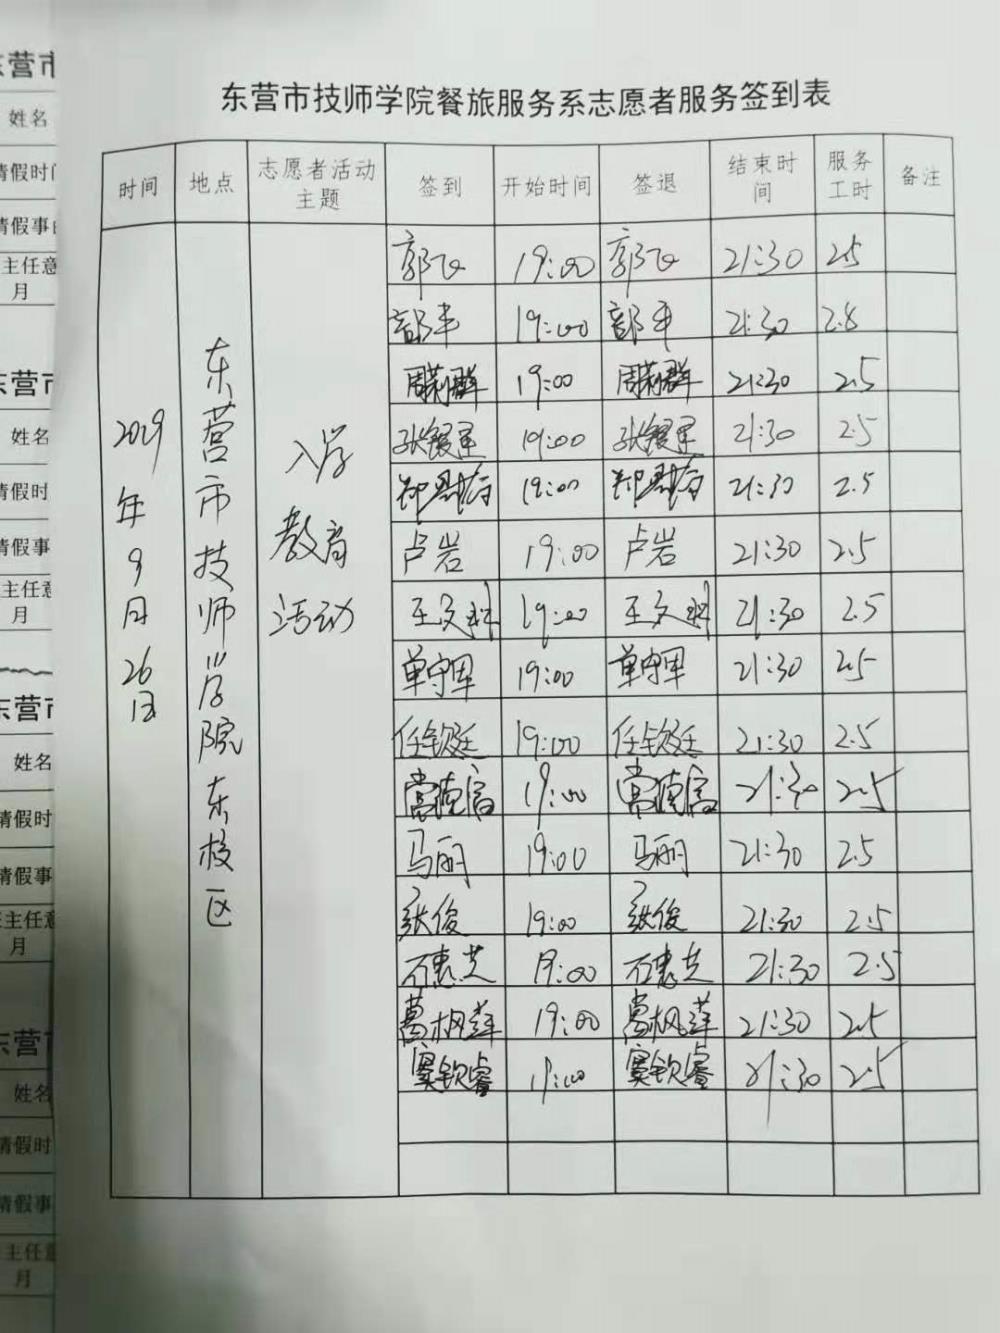 东营市技师学院餐旅服务系志愿者服务签到表
时间 地点 志愿者活动主题 签到 开始时间 签退 结束时间 服务工时 备注
2019年9月26日
东营市技师学院东校区
入学教育活动
郭飞 19:00 郭飞 21:30 2.5
19:00 21:30 2.5
周莉群 19:00 周莉群 21:30 2.5
19:00 21:30 2.5
19:00 21:30 2.5
卢岩 19:00 卢岩 21:30 2.5
王文科 19:00 王文科 21:30 2.5
单守军 19:00 单守军 21:30 2.5
任钦廷 19:00 任钦廷 21:30 2.5
常德富 19:00 常德富 21:30 2.5
马丽 19:00 马丽 21:30 2.5
张俊 19:00 张俊 21:30 2.5
石惠芝 19:00 石惠芝 21:30 2.5
葛枫莲 19:00 葛枫莲 21:30 2.5
窦钦睿 19:00 窦钦睿 21:30 2.5
东营市
姓名
请假时间
请假事
主任意
月
东营市
姓名
请假时
请假事
主任意
月
东营市
姓名
请假时
请假事
主任意
月
东营市
姓名
请假时
请假事
主任意
月